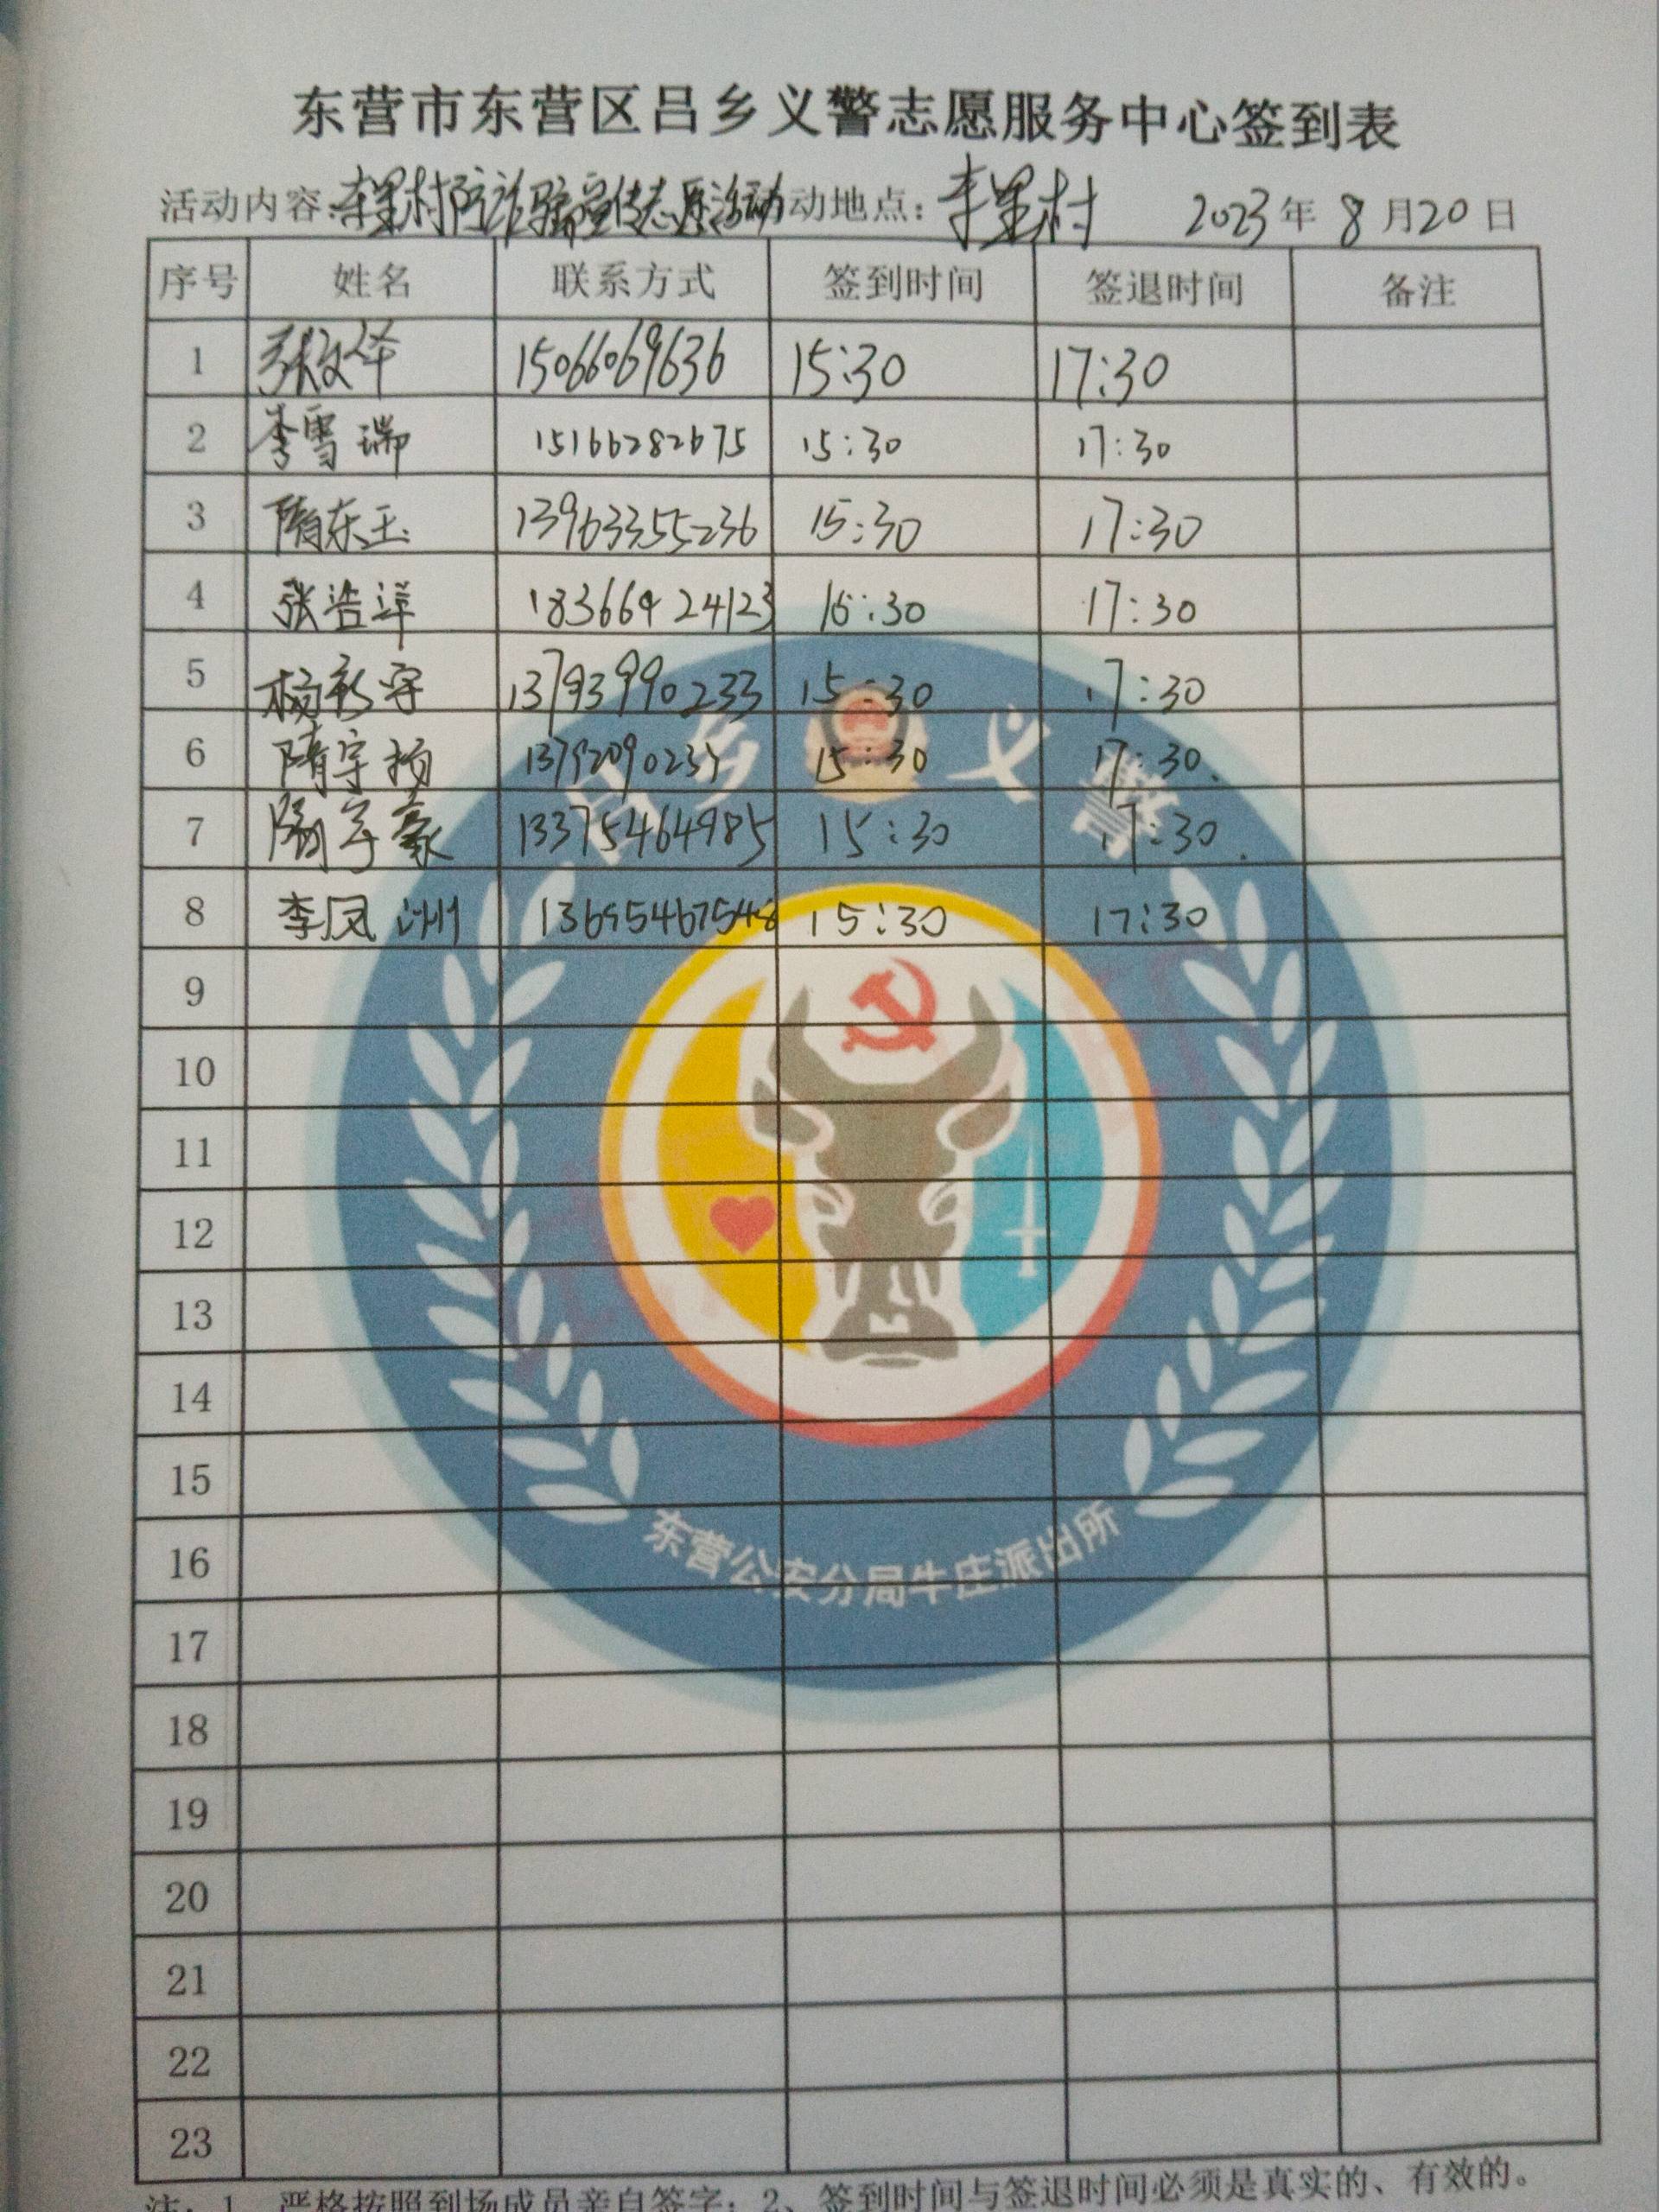 东营市东营区吕乡义警志愿服务中心签到表
活动内容:李里村防诈骗宣传志愿活动 动地点:李里村 2023年8月20日
序号 姓名 联系方式 签到时间 签退时间 备注
1 张文华 15066069636 15:30 17:30
2 李雪瑞 15166282675 15:30 17:30
3 隋东玉 13963355236 15:30 17:30
4 张浩洋 183669424123 15:30 17:30
5 杨彩宇 13793990233 15:30 17:30
6 隋宇扬 15:30 17:30
7 隋宇豪 13375464985 15:30 17:30
8 李凤洲 13695467548 15:30 17:30
9
10
11
12
13
14
15
16
17
18
19
20
21
22
23
吕乡义警
东营公安分局牛庄派出所
注:1、严格按照到场成员亲自签字;2、签到时间与签退时间必须是真实的、有效的。